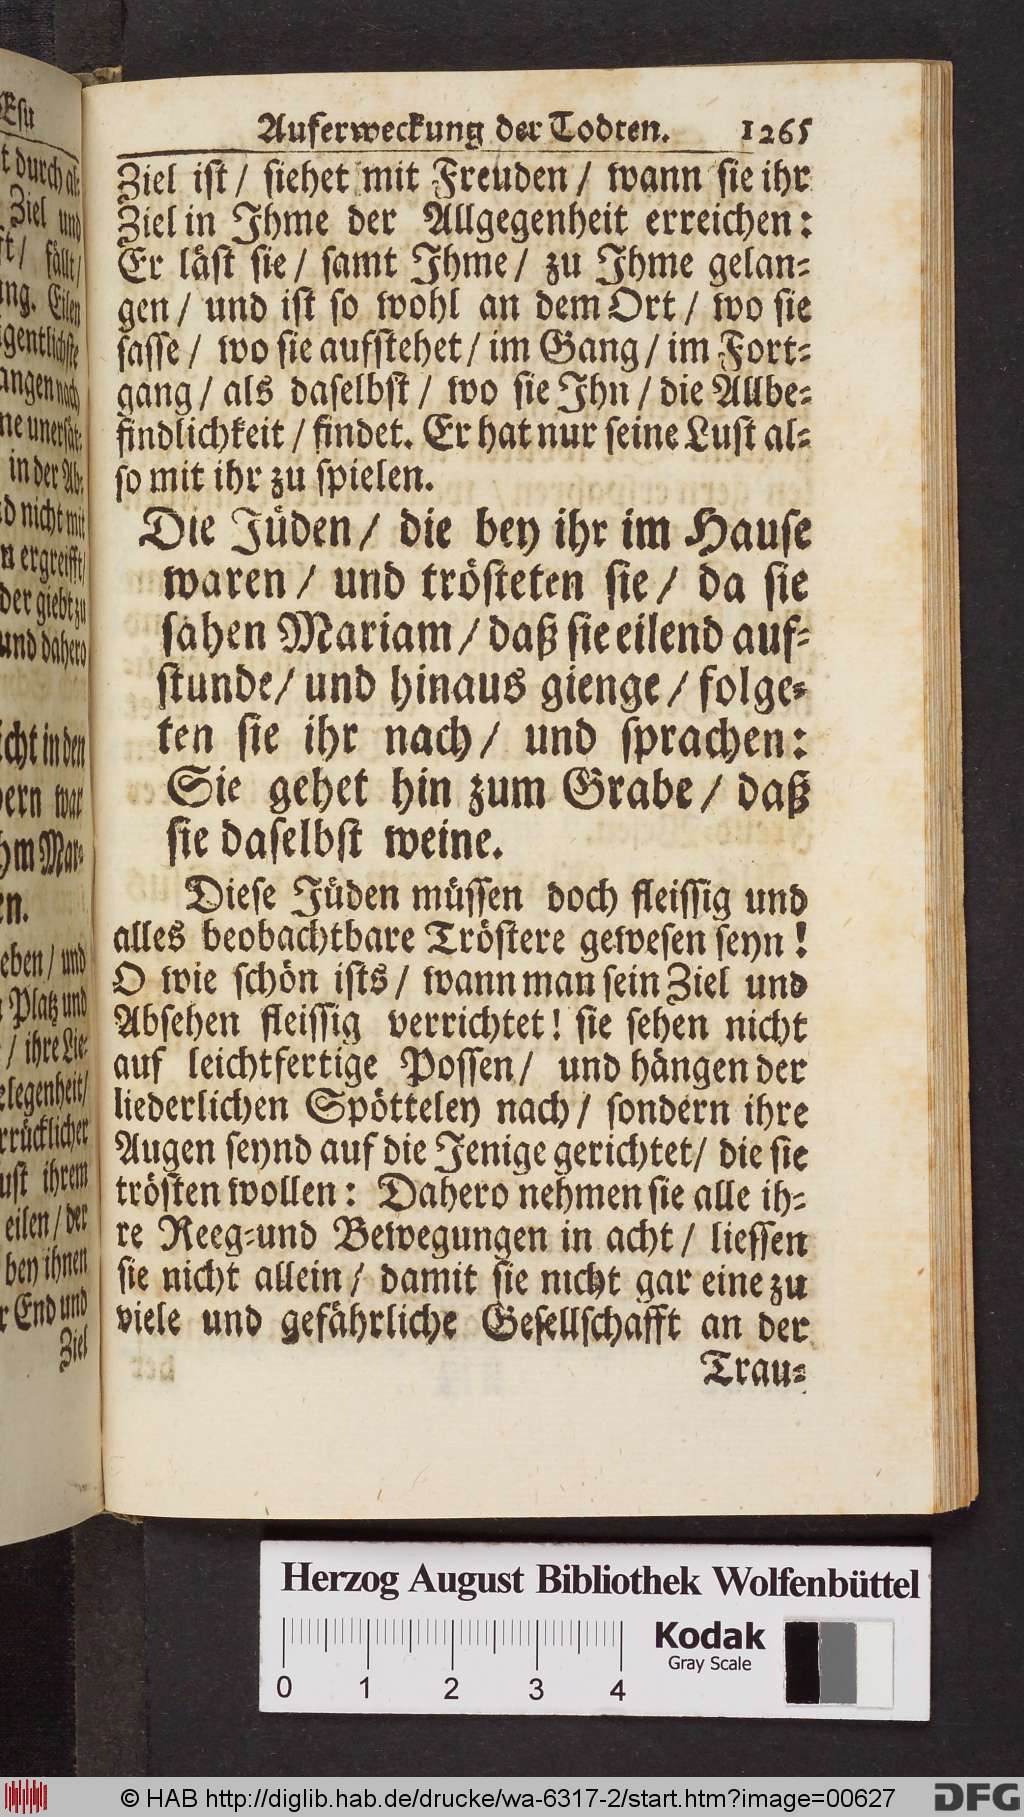 Auferweckung der Todten. 1265
Ziel ist / siehet mit Freuden / wann sie ihr
Ziel in Ihme der Allgegenheit erreichen:
Er läst sie / samt Ihme / zu Ihme gelan-
gen / und ist so wohl an dem Ort / wo sie
sasse / wo sie aufstehet / im Gang / im Fort-
gang / als daselbst / wo sie Ihn / die Allbe-
findlichkeit / findet. Er hat nur seine Lust al-
so mit ihr zu spielen.
Die Jüden / die bey ihr im Hause
waren / und trösteten sie / da sie
sahen Mariam / daß sie eilend auf-
stunde / und hinaus gienge / folge-
ten sie ihr nach / und sprachen:
Sie gehet hin zum Grabe / daß
sie daselbst weine.
Diese Jüden müssen doch fleissig und
alles beobachtbare Tröstere gewesen seyn!
O wie schön ists / wann man sein Ziel und
Absehen fleissig verrichtet! sie sehen nicht
auf leichtfertige Possen / und hängen der
liederlichen Spötteley nach / sondern ihre
Augen seynd auf die Jenige gerichtet / die sie
trösten wollen: Dahero nehmen sie alle ih-
re Reeg-und Bewegungen in acht / liessen
sie nicht allein / damit sie nicht gar eine zu
viele und gefährliche Gesellschafft an der
Trau-
Esu
t durch al-
Ziel und
ft / fällt /
ng. Eilen
igentlichste
angen nach
ne unersät-
in der Ab-
d nicht mit
n ergreifft /
der giebt zu
und dahero
icht in den
dern war
hm Mar-
en.
eben / und
Platz und
/ ihre Lie-
elegenheit /
rrücklicher
ust ihrem
eilen / der
bey ihnen
r End und
Ziel
Herzog August Bibliothek Wolfenbüttel
Kodak
Gray Scale
0 1 2 3 4
© HAB http://diglib.hab.de/drucke/wa-6317-2/start.htm?image=00627
DFG